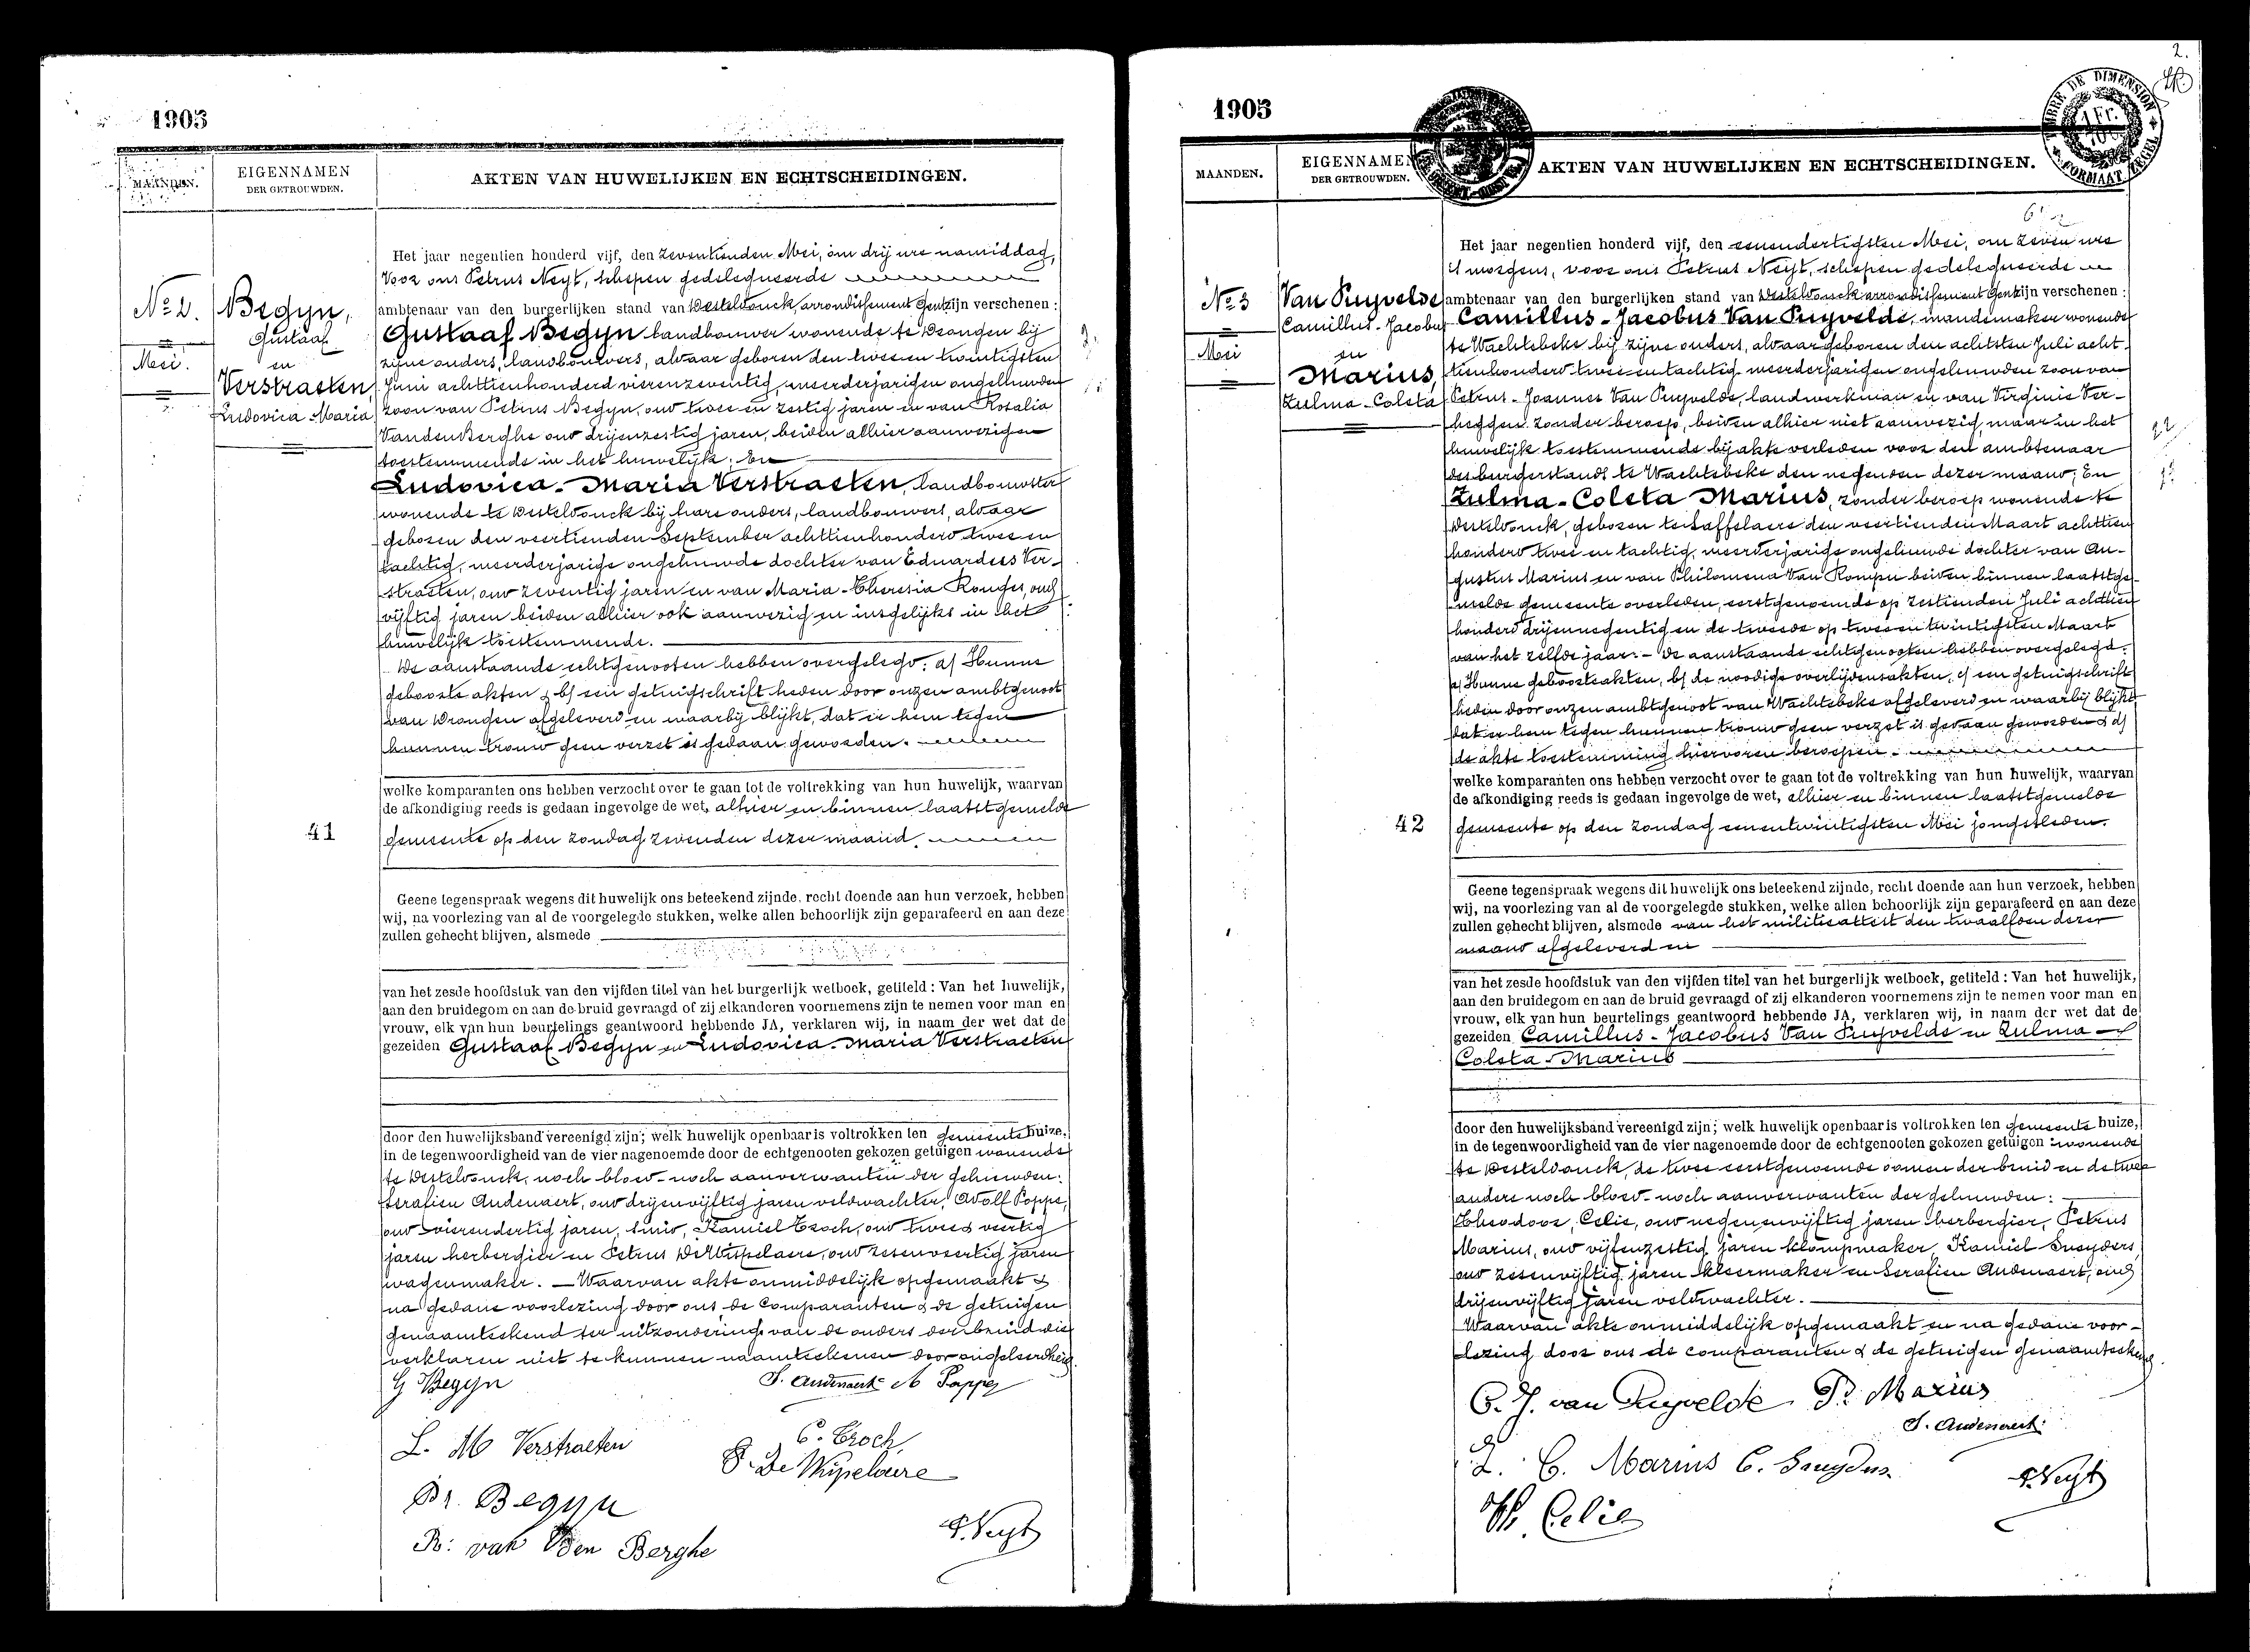 1905
MAANDEN.
EIGENNAMEN
DER GETROUWDEN.
AKTEN VAN HUWELIJKEN EN ECHTSCHEIDINGEN.
No 2.
Mei.
Begyn,
Gustaaf
en
Verstraeten,
Ludovica-Maria
41
Het jaar negentien honderd vijf, den zeventienden Mei, om drij ure namiddag,
voor ons Petrus Neyt, schepen gedelegueerde
ambtenaar van den burgerlijken stand van Desteldonck, arrondissement Gent zijn verschenen :
Gustaaf Begyn landbouwer wonende te Drongen bij
zijne ouders, landbouwers, alwaar geboren den twee en twintigsten
Juni achttienhonderd vierenzeventig, meerderjarigen ongehuwden
zoon van Petrus Begyn, oud twee en zestig jaren en van Rosalia
VandenBerghe oud drijenzestig jaren, beiden alhier aanwezig en
toestemmende in het huwelijk; En
Ludovica-Maria Verstraeten, landbouwster
wonende te Desteldonck bij hare ouders, landbouwers, alwaar
geboren den veertienden September achttienhonderd twee en
tachtig, meerderjarige ongehuwde dochter van Eduardus Ver-
straeten, oud zeventig jaren en van Maria-Theresia Ronges, oud
vijftig jaren beiden alhier ook aanwezig en insgelijks in het
huwelijk toestemmende.
De aanstaande echtgenooten hebben overgelegd: a/ Hunne
geboorte akten & b/ een getuigschrift heden door onzen ambtgenoot
van Drongen afgeleverd en waarbij blijkt, dat er hem tegen
hunnen trouw geen verzet is gedaan geworden.
welke komparanten ons hebben verzocht over te gaan tot de voltrekking van hun huwelijk, waarvan
de afkondiging reeds is gedaan ingevolge de wet, alhier en binnen laatstgemelde
gemeente op den zondag zevenden dezer maand.
Geene tegenspraak wegens dit huwelijk ons beteekend zijnde, recht doende aan hun verzoek, hebben
wij, na voorlezing van al de voorgelegde stukken, welke allen behoorlijk zijn geparafeerd en aan deze
zullen gehecht blijven, alsmede
van het zesde hoofdstuk van den vijfden titel van het burgerlijk wetboek, getiteld : Van het huwelijk,
aan den bruidegom en aan de bruid gevraagd of zij elkanderen voornemens zijn te nemen voor man en
vrouw, elk van hun beurtelings geantwoord hebbende JA, verklaren wij, in naam der wet dat de
gezeiden Gustaaf Begyn en Ludovica-Maria Verstraeten
door den huwelijksband vereenigd zijn; welk huwelijk openbaar is voltrokken ten gemeente huize,
in de tegenwoordigheid van de vier nagenoemde door de echtgenooten gekozen getuigen wonende
te Desteldonck, noch bloed- noch aanverwanten der gehuwden:
Serafien Audenaert, oud drijenvijftig jaren veldwachter, Adolf Poppe,
oud vierendertig jaren, smid, Kamiel Troch, oud twee & veertig
jaren herbergier en Petrus DeWispelaere, oud zesenveertig jaren
wagenmaker. — Waarvan akte onmiddelijk opgemaakt &
na gedane voorlezing door ons, de comparanten & de getuigen
genaamteekend ter uitzondering van de ouders der bruid die
verklaren niet te kunnen naamteekenen door ongeleerdheid.
G Begyn
S. Audenaert A Poppe
L. M Verstraeten
C. Troch
P. De Wispelaere
Pr. Begyn
R: van Den Berghe
P. Neyt
2.
1905
TIMBRE DE DIMENSION
FORMAAT ZEGEL
1 Fr.
MAANDEN.
EIGENNAMEN
DER GETROUWDEN.
AKTEN VAN HUWELIJKEN EN ECHTSCHEIDINGEN.
No 3
Mei
Van Puyvelde
Camillus-Jacobus
en
Marius,
Zulma-Coleta
42
Het jaar negentien honderd vijf, den eenendertigsten Mei, om zeven ure
's morgens, voor ons Petrus Neyt, schepen gedelegueerde
ambtenaar van den burgerlijken stand van Desteldonck arrondissement Gent zijn verschenen :
Camillus-Jacobus Van Puyvelde, mandemaker wonende
te Wachtebeke bij zijne ouders, alwaar geboren den achtsten Juli acht-
tienhonderd twee en tachtig meerderjarigen ongehuwden zoon van
Petrus-Joannes Van Puyvelde, landwerkman en van Virginie Ver-
heggen zonder beroep, beiden alhier niet aanwezig, maar in het
huwelijk toestemmende bij akte verleden voor den ambtenaar
des burgerstands te Wachtebeke den negenden dezer maand; En
Zulma-Coleta Marius, zonder beroep wonende te
Desteldonck, geboren te Saffelaere den veertienden Maart achttien
honderd twee en tachtig, meerderjarige ongehuwde dochter van Au-
gustus Marius en van Philomena Van Rompu beiden binnen laatstge-
melde gemeente overleden, eerstgenoemde op zestienden Juli achttien
honderd drijennegentig en de tweede op twee en twintigsten Maart
van het zelfde jaar. — De aanstaande echtgenooten hebben overgelegd:
a/ Hunne geboorteakten, b/ de noodige overlijdensakten, c/ een getuigschrift
heden door onzen ambtgenoot van Wachtebeke afgeleverd en waarbij blijkt,
dat er hem tegen hunnen trouw geen verzet is gedaan geworden & d/
de akte toestemming hiervoren beroepen.
welke komparanten ons hebben verzocht over te gaan tot de voltrekking van hun huwelijk, waarvan
de afkondiging reeds is gedaan ingevolge de wet, alhier en binnen laatstgemelde
gemeente op den zondag eenentwintigsten Mei jongstleden.
Geene tegenspraak wegens dit huwelijk ons beteekend zijnde, recht doende aan hun verzoek, hebben
wij, na voorlezing van al de voorgelegde stukken, welke allen behoorlijk zijn geparafeerd en aan deze
zullen gehecht blijven, alsmede van het militieattest den twaalfden dezer
maand afgeleverd en
van het zesde hoofdstuk van den vijfden titel van het burgerlijk wetboek, getiteld : Van het huwelijk,
aan den bruidegom en aan de bruid gevraagd of zij elkanderen voornemens zijn te nemen voor man en
vrouw, elk van hun beurtelings geantwoord hebbende JA, verklaren wij, in naam der wet dat de
gezeiden Camillus-Jacobus Van Puyvelde en Zulma-
Coleta Marius
door den huwelijksband vereenigd zijn; welk huwelijk openbaar is voltrokken ten gemeente huize,
in de tegenwoordigheid van de vier nagenoemde door de echtgenooten gekozen getuigen wonende
te Desteldonck, de twee eerstgenoemde oomen der bruid en de twee
andere noch bloed- noch aanverwanten der gehuwden:
Theodoor, Celie, oud negenenvijftig jaren herbergier, Petrus
Marius, oud vijfenzestig jaren klompmaker, Kamiel Snyders,
oud zesenvijftig jaren kleermaker en Serafien Audenaert, oud
drijenvijftig jaren veldwachter.
Waarvan akte onmiddelijk opgemaakt en na gedane voor-
lezing door ons de comparanten & de getuigen genaamteekend.
C. J. van Puyvelde P. Marius
S. Audenaert
Z. C. Marius C. Snuyders
P. Neyt
Th. Celie